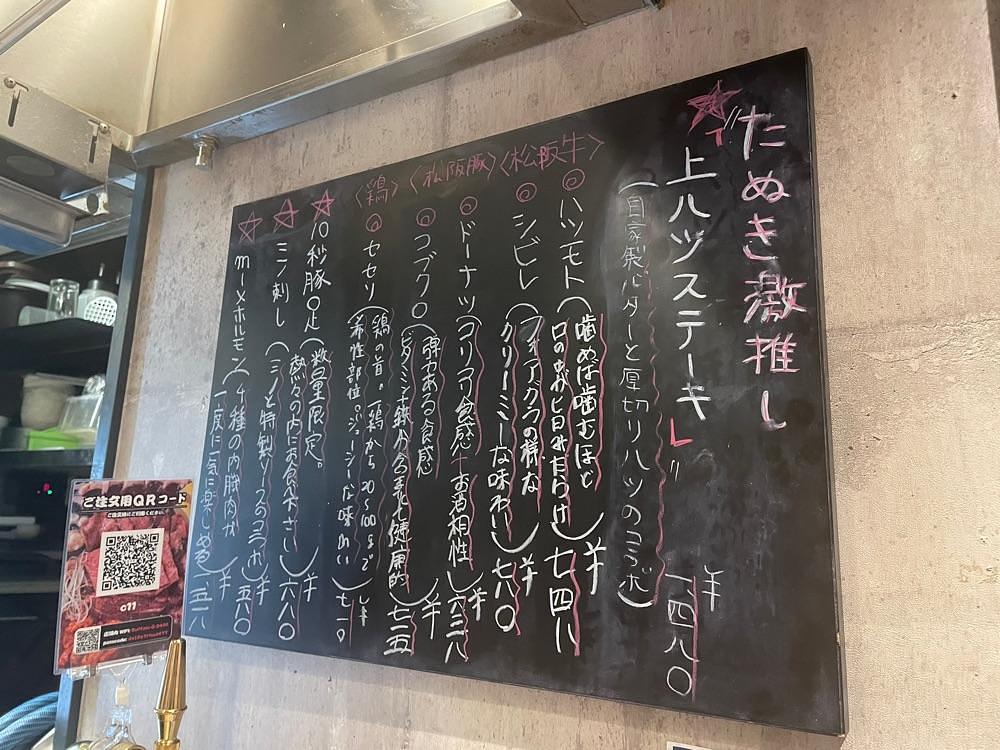 たぬき激推し
"「上ハツステーキ」"
(自家製バターと厚切りハツのコラボ)
¥一四八〇
〈松阪牛〉
ハツモト(噛めば噛むほど
口の中が旨みだらけ)
¥七四八
シビレ(フォアグラの様な
クリーミーな味わい)
¥七八〇
〈松阪豚〉
ドーナツ(コリコリ食感 お酒相性
¥六三八
コブクロ(弾力ある食感
ビタミン・鉄分含有 健康的)
¥七一五
〈鶏〉
セセリ(鶏の首。一鶏から
希性部位。ジューシーな味わい)
¥七一〇
10秒豚足(数量限定。
熱々の内にお食べ下さい)
¥六八〇
ミノ刺し(ミノと特製ソースのコラボ)
¥五八〇
mixホルモン(4種の内臓肉が
一度に一気に楽しめる)
¥一五一八
ご注文用QRコード
c11